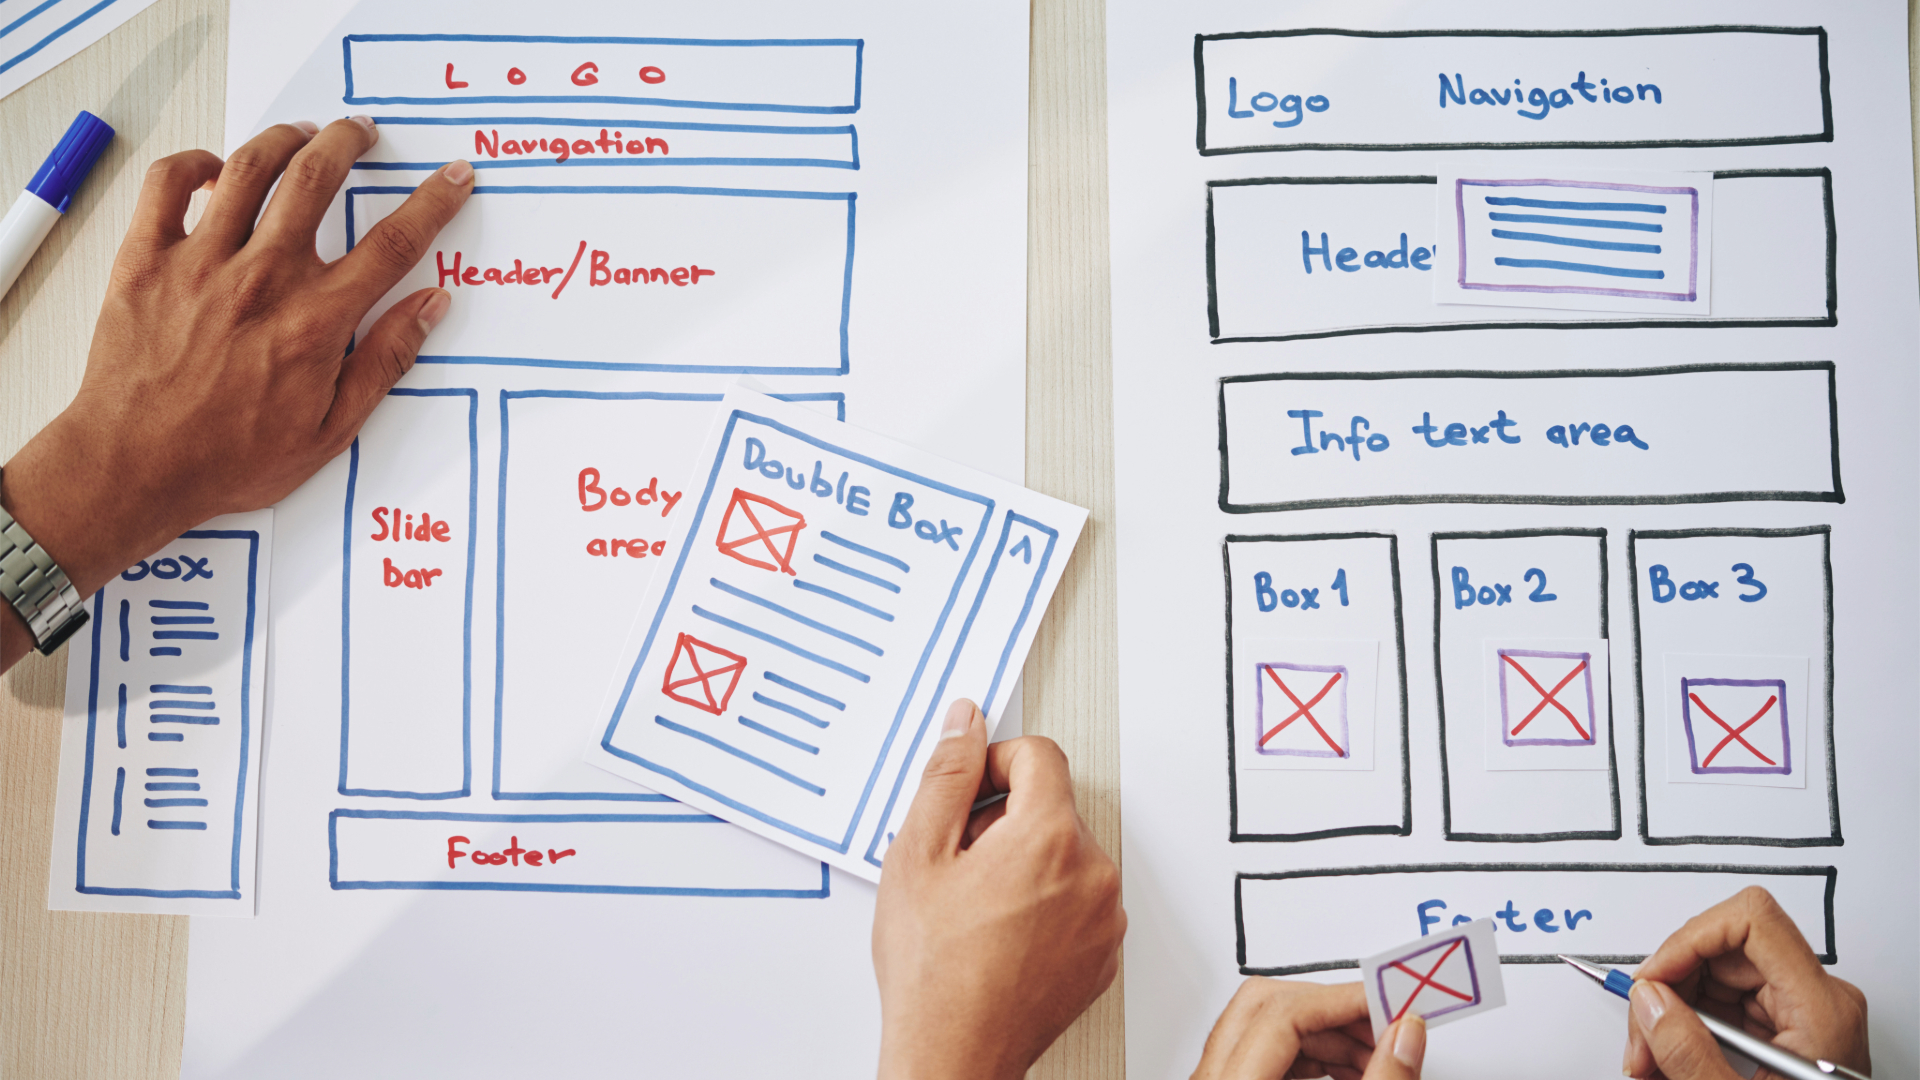 L O G O
Navigation
Header/Banner
Slide
bar
Body
area
Footer
Box
DoublE Box
Logo Navigation
Header
Info text area
Box 1
Box 2
Box 3
Footer